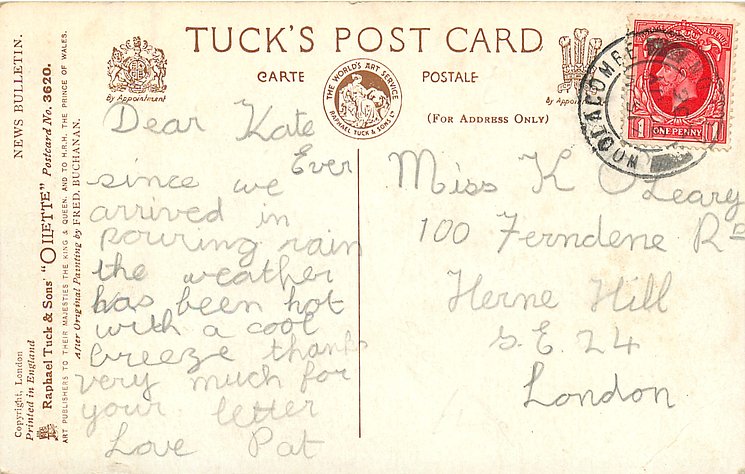 TUCK'S POST CARD
CARTE POSTALE
(FOR ADDRESS ONLY)
By Appointment
THE WORLD'S ART SERVICE
RAPHAEL TUCK & SONS LD
By Appointment
WOOLACOMBE
1 ONE PENNY 1
NEWS BULLETIN.
Raphael Tuck & Sons' "OILETTE" Postcard No. 3620.
ART PUBLISHERS TO THEIR MAJESTIES THE KING & QUEEN, AND TO H.R.H. THE PRINCE OF WALES.
After Original Painting by FRED. BUCHANAN.
Copyright, London
Printed in England
Dear Kate
Ever
since we
arrived in
pouring rain
the weather
has been hot
with a cool
breeze thanks
very much for
your letter
Love Pat
Miss K O'Leary
100 Ferndene Rd
Herne Hill
S.E. 24
London